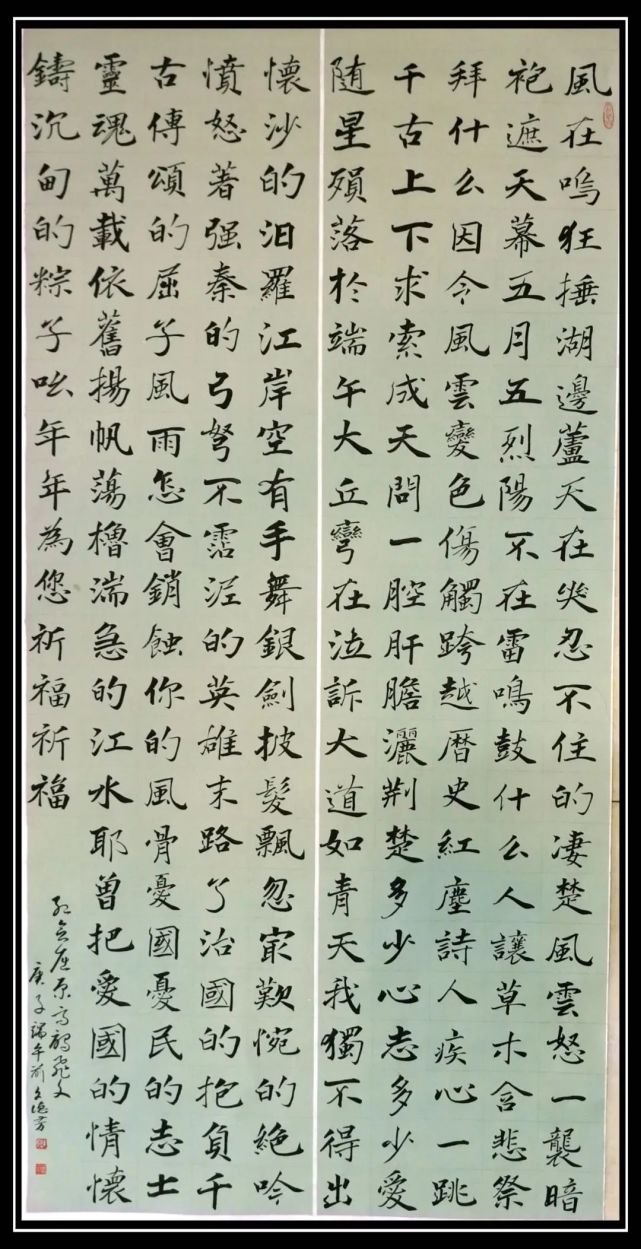 風在嗚狂捶湖邊蘆天在哭忍不住的凄楚風雲怒一襲暗
袍遮天幕五月五烈陽不在雷鳴鼓什么人讓草木含悲祭
拜什么因令風雲變色傷觸跨越曆史紅塵詩人疾心一跳
千古上下求索成天問一腔肝膽灑荆楚多少心志多少愛
随星殞落於端午大丘彎在泣訴大道如青天我獨不得出
懷沙的汨羅江岸空有手舞銀劍披髮飄忽寂歎惋的絕吟
憤怒著强秦的弓弩不霑泥的英雄末路了治國的抱負千
古傳頌的屈子風雨怎會銷蝕你的風骨憂國憂民的志士
靈魂萬載依舊揚帆蕩櫓湍急的江水耶曾把愛國的情懷
鑄沉甸的粽子呦年年為您祈福祈福
庚子端午前